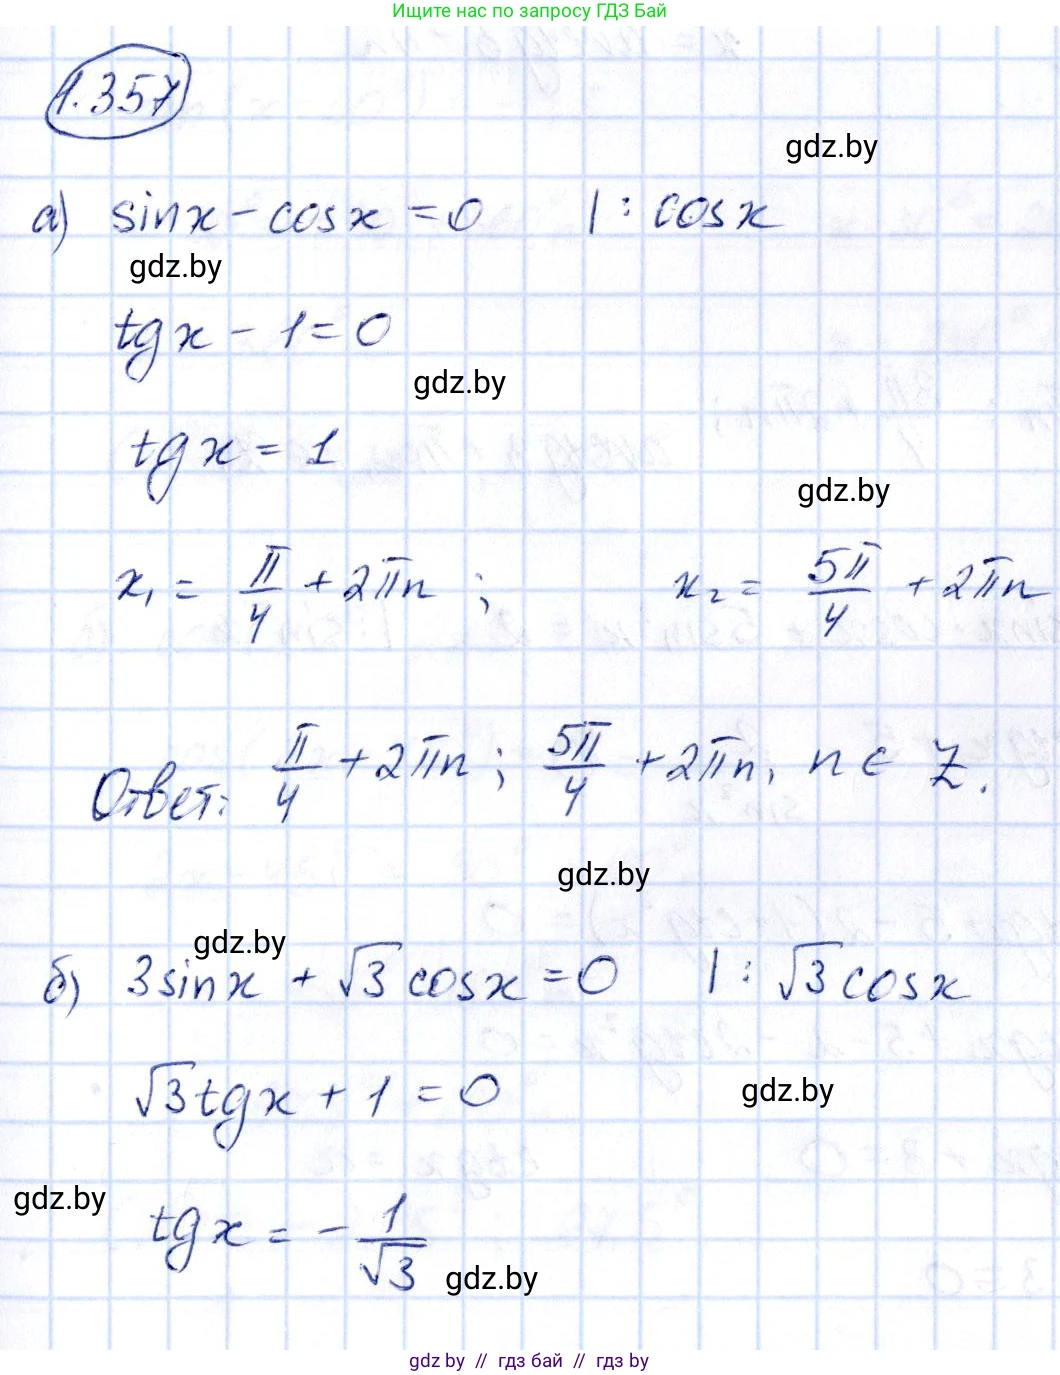 Ищите нас по запросу ГДЗ Бай
1.357
gdz.by
а) sinx - cosx = 0 | : cosx
gdz.by
tgx - 1 = 0
gdz.by
tgx = 1
gdz.by
x₁ = π/4 + 2πn ; x₂ = 5π/4 + 2πn
Ответ: π/4 + 2πn ; 5π/4 + 2πn, n ∈ Z.
gdz.by
gdz.by
б) 3sinx + √3 cosx = 0 | : √3 cosx
√3 tgx + 1 = 0
gdz.by
gdz.by
tgx = - 1/√3
gdz.by
gdz by // гдз бай // гдз by